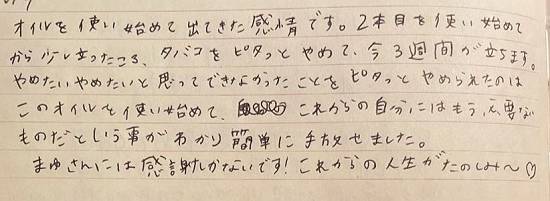 オイルを使い始めて出てきた感情です。2本目を使い始めて
から少し立ったころ、タバコをピタッとやめて、今3週間が立ちます。
やめたいやめたいと思ってできなかったことをピタッとやめられたのは
このオイルを使い始めて、これからの自分にはもう、必要ない
ものだという事がわかり簡単に手放せました。
まゆさんには感謝しかないです!これからの人生がたのしみ〜♡